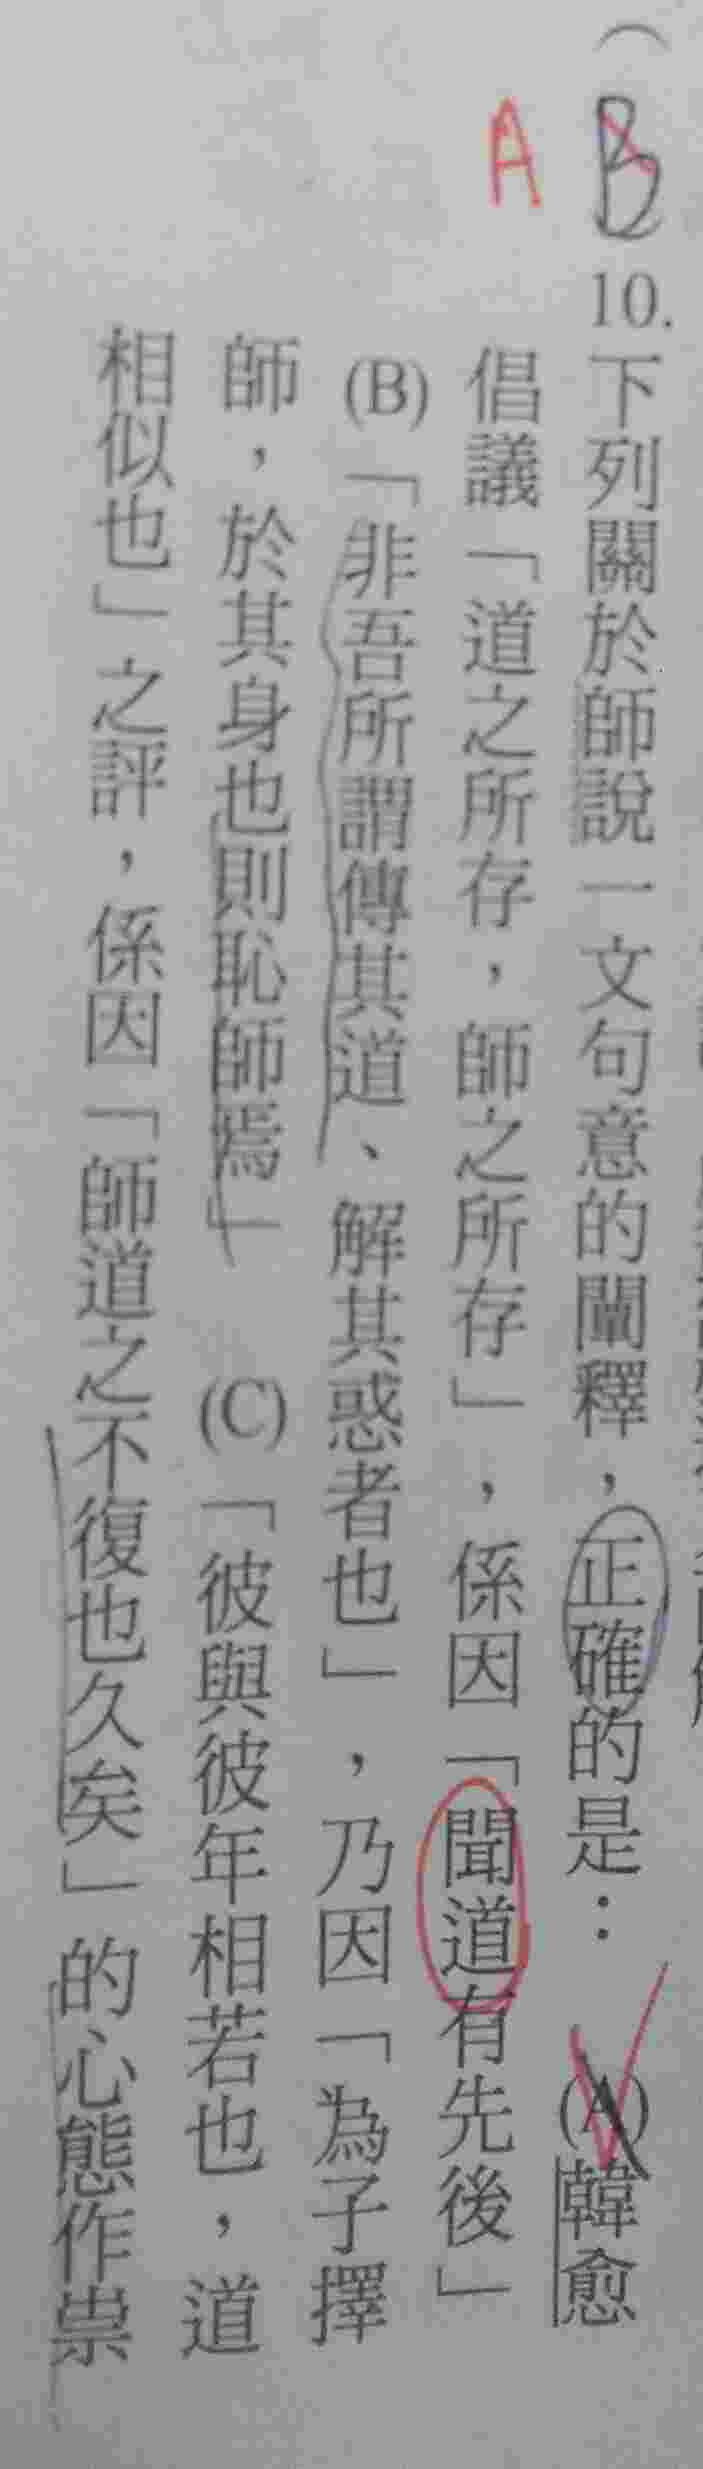 (B)10.下列關於師說一文句意的闡釋，正確的是： (A)韓愈
A
倡議「道之所存，師之所存」，係因「聞道有先後」
(B)「非吾所謂傳其道、解其惑者也」，乃因「為子擇
師，於其身也則恥師焉」 (C)「彼與彼年相若也，道
相似也」之評，係因「師道之不復也久矣」的心態作祟